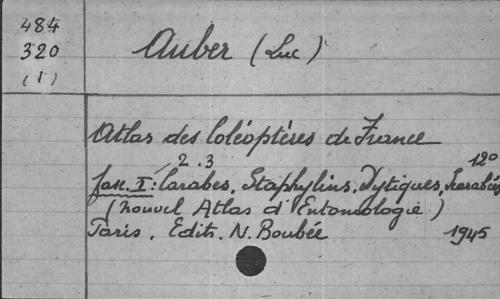 484
320
(1)
Auber (Luc)
Atlas des Coléoptères de France
2.3 12°
fasc. I : Carabes, Staphylins, Dytiques, Scarabées
(Nouvel Atlas d'Entomologie)
Paris. Edits. N. Boubée 1945